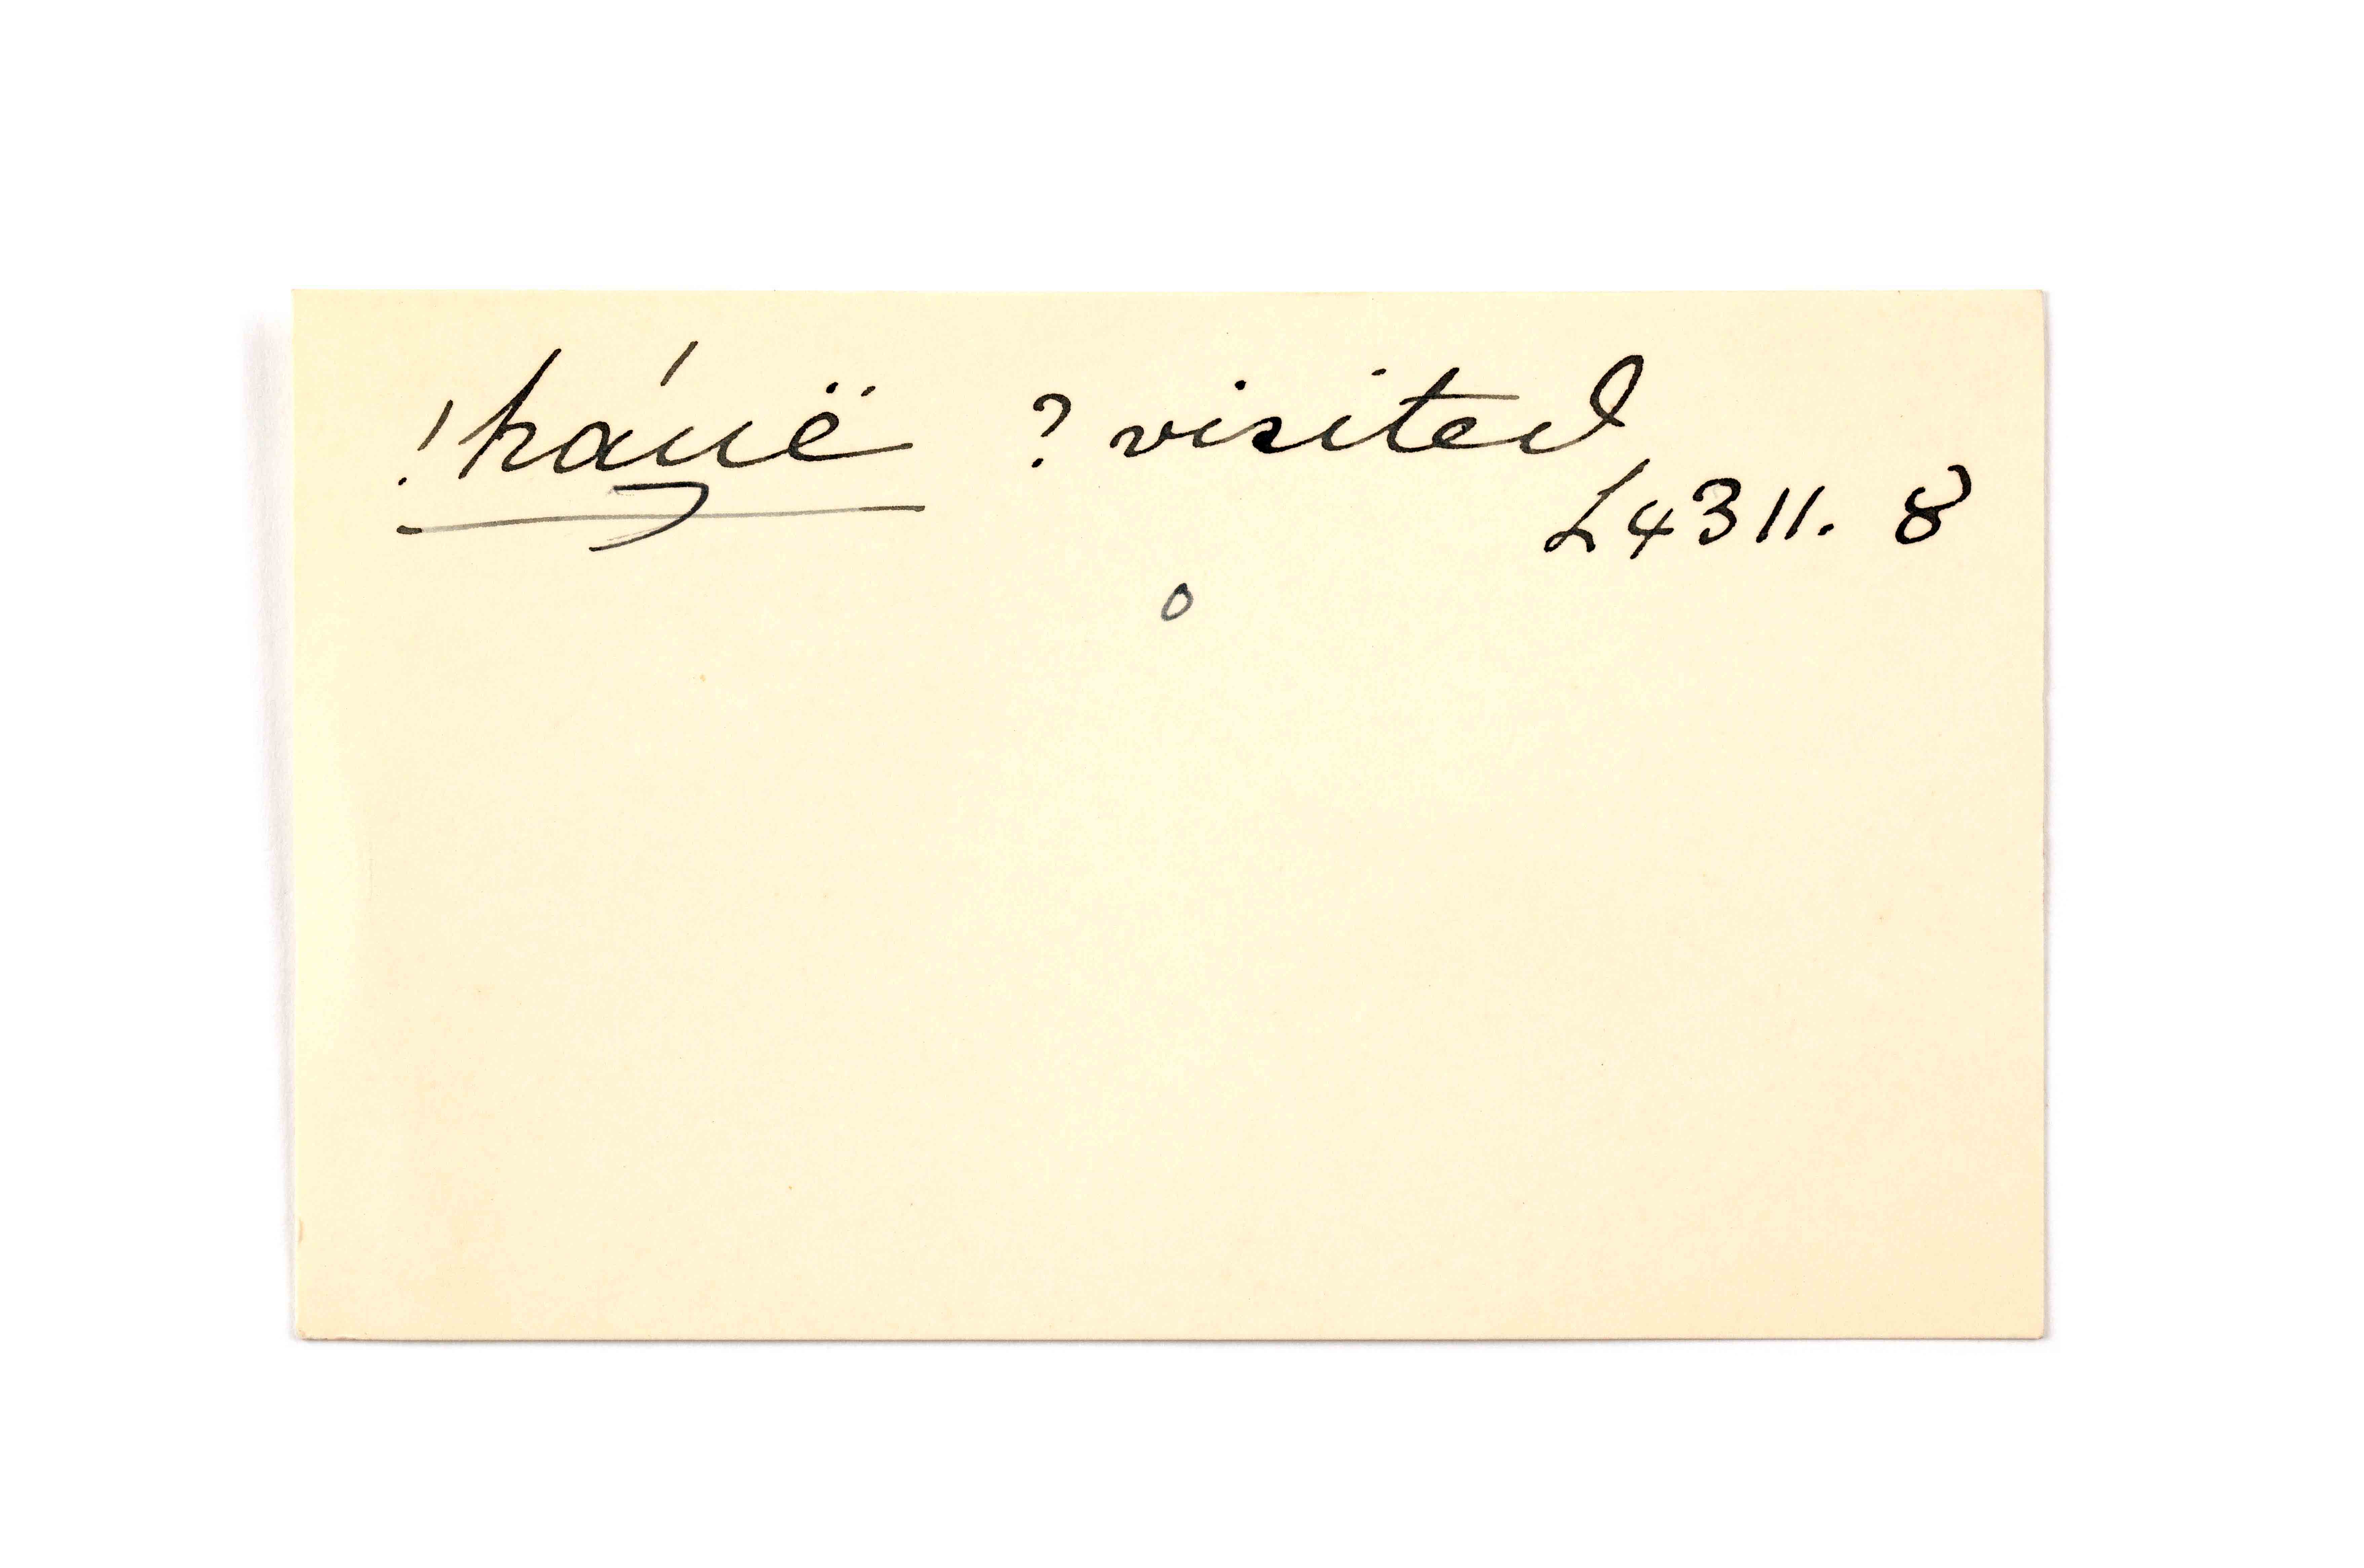 !háuë ? visited
L4311. 8
o